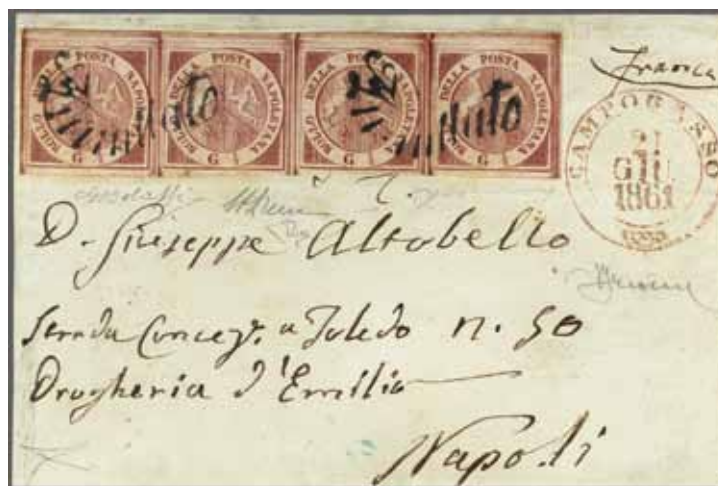 BOLLO DELLA POSTA NAPOLETANA
G
BOLLO DELLA POSTA NAPOLETANA
G
BOLLO DELLA POSTA NAPOLETANA
G
BOLLO DELLA POSTA NAPOLETANA
G
Annullato
Annullato
Franca
CAMPOBASSO
21
GIU
1861
D. Giuseppe Altobello
Strada Concez. a Toledo n. 50
Drogheria d'Emilio
Napoli